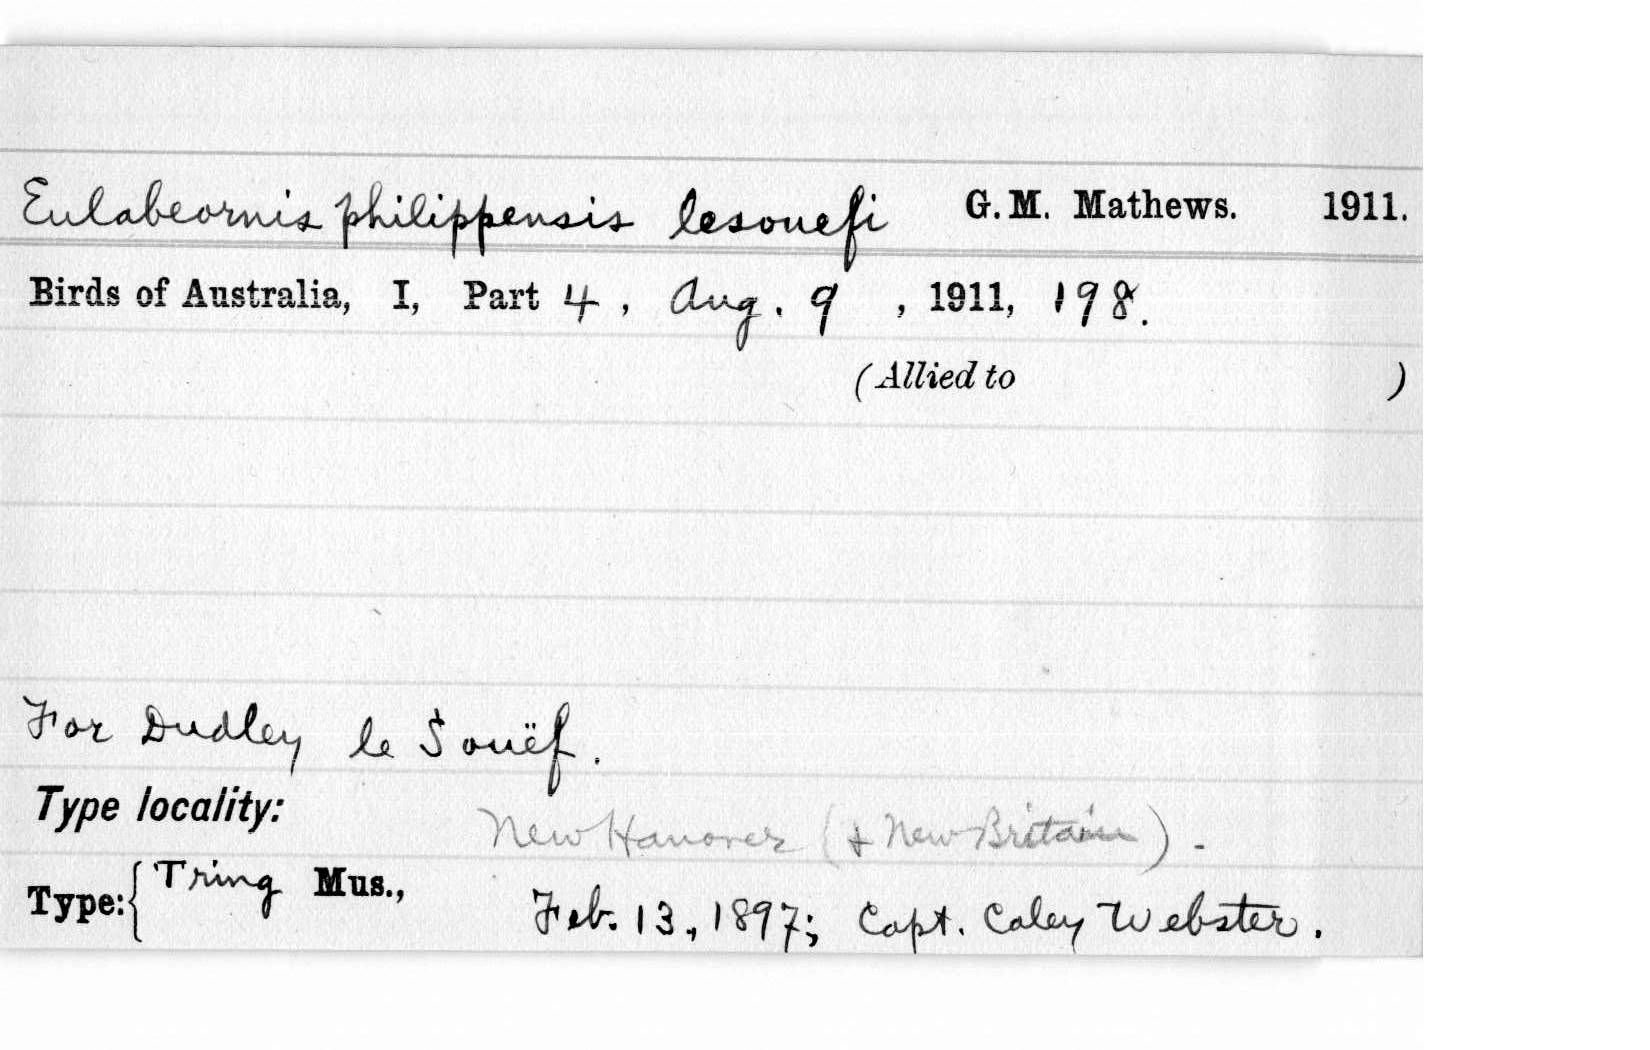 Eulabeornis philippensis lesouefi G. M. Mathews. 1911.
Birds of Australia, I, Part 4, Aug. 9, 1911, 198.
(Allied to )
For Dudley le Souëf.
Type locality: New Hanover (& New Britain).
Type: { Tring Mus., Feb. 13, 1897; Capt. Caley Webster.